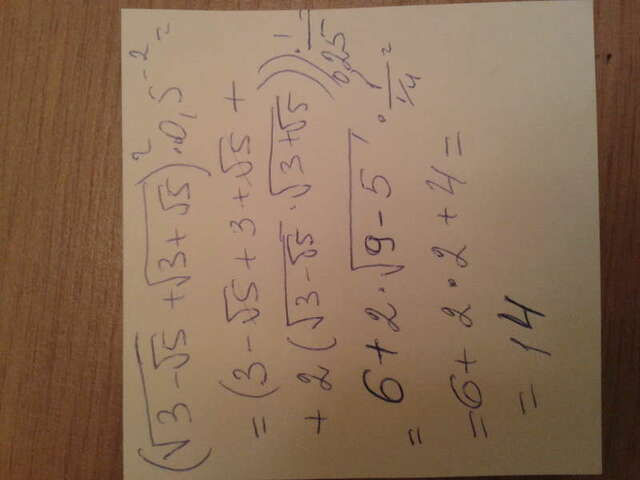 (√(3-√5) + √(3+√5))² · 0,5⁻² =
= (3-√5+3+√5 +
+ 2(√(3-√5) · √(3+√5))) · 1/0,25 =
= 6+2·√(9-5) · 1/(1/4) =
= 6+2·2+4 =
= 14